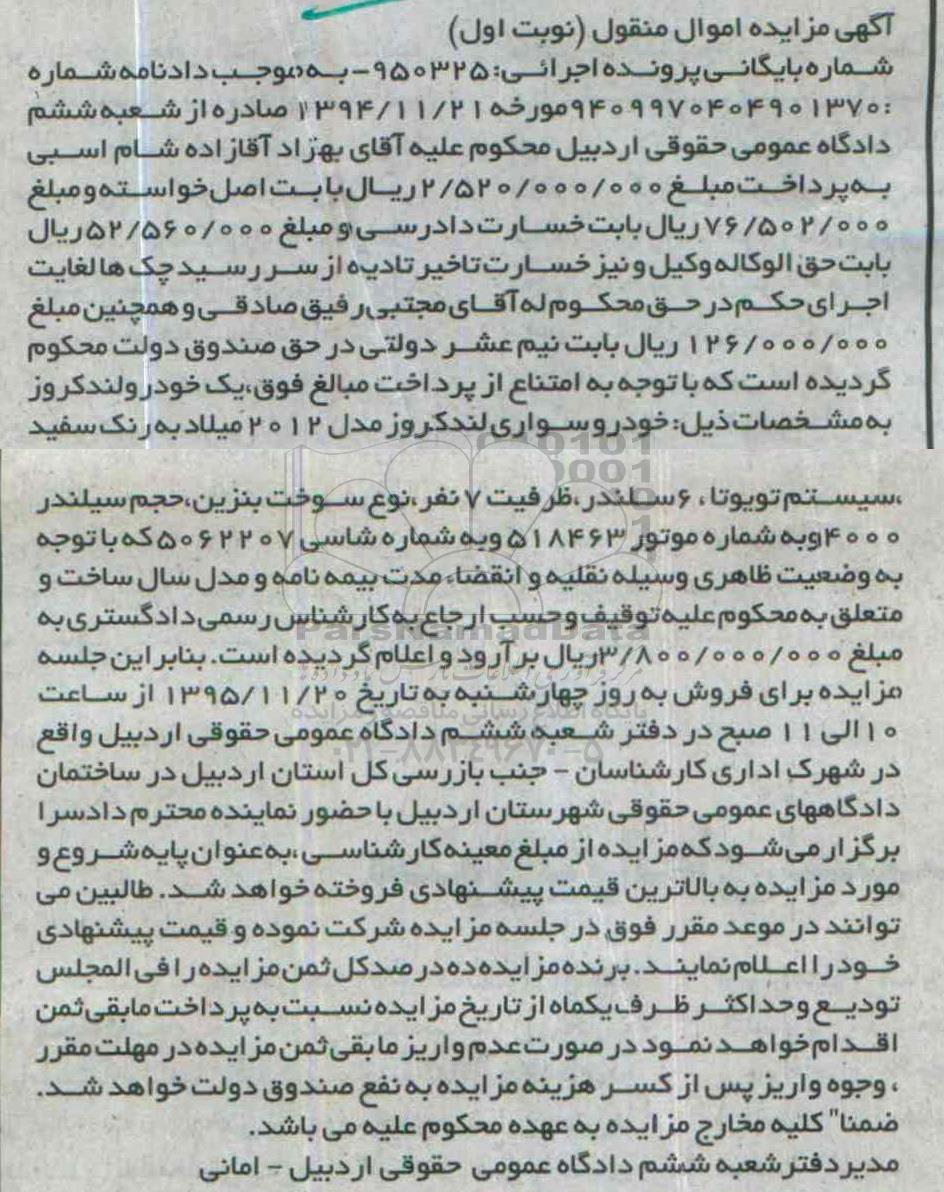 آگهی مزایده اموال منقول (نوبت اول)
شماره بایگانی پرونده اجرائی: ۹۵۰۳۲۵- به موجب دادنامه شماره
:۹۴۰۹۹۷۰۴۰۴۹۰۱۳۷۰ مورخه ۱۳۹۴/۱۱/۲۱ صادره از شعبه ششم
دادگاه عمومی حقوقی اردبیل محکوم علیه آقای بهزاد آقازاده شام اسبی
به پرداخت مبلغ ۲/۵۲۰/۰۰۰/۰۰۰ ریال بابت اصل خواسته و مبلغ
۷۶/۵۰۲/۰۰۰ ریال بابت خسارت دادرسی و مبلغ ۵۲/۵۶۰/۰۰۰ ریال
بابت حق الوکاله وکیل و نیز خسارت تاخیر تادیه از سررسید چک ها لغایت
اجرای حکم در حق محکوم له آقای مجتبی رفیق صادقی و همچنین مبلغ
۱۲۶/۰۰۰/۰۰۰ ریال بابت نیم عشر دولتی در حق صندوق دولت محکوم
گردیده است که با توجه به امتناع از پرداخت مبالغ فوق،یک خودرو لندکروز
به مشخصات ذیل: خودرو سواری لندکروز مدل ۲۰۱۲ میلاد به رنگ سفید
،سیستم تویوتا ، ۶ سلندر،ظرفیت ۷ نفر،نوع سوخت بنزین،حجم سیلندر
۴۰۰۰ وبه شماره موتور ۵۱۸۴۶۳ وبه شماره شاسی ۵۰۶۲۲۰۷ که با توجه
به وضعیت ظاهری وسیله نقلیه و انقضاء مدت بیمه نامه و مدل سال ساخت و
متعلق به محکوم علیه توقیف و حسب ارجاع به کارشناس رسمی دادگستری به
ParsNamadData
مبلغ ۳/۸۰۰/۰۰۰/۰۰۰ ریال برآورد و اعلام گردیده است. بنابراین جلسه
مزایده برای فروش به روز چهارشنبه به تاریخ ۱۳۹۵/۱۱/۲۰ از ساعت
پایگاه اطلاع رسانی مناقصه مزایده
۱۰ الی ۱۱ صبح در دفتر شعبه ششم دادگاه عمومی حقوقی اردبیل واقع
۰۲۱-۸۸۳۴۹۶۷۰-۵
در شهرک اداری کارشناسان - جنب بازرسی کل استان اردبیل در ساختمان
دادگاههای عمومی حقوقی شهرستان اردبیل با حضور نماینده محترم دادسرا
برگزار می شود که مزایده از مبلغ معینه کارشناسی ،به عنوان پایه شروع و
مورد مزایده به بالاترین قیمت پیشنهادی فروخته خواهد شد. طالبین می
توانند در موعد مقرر فوق در جلسه مزایده شرکت نموده و قیمت پیشنهادی
خود را اعلام نمایند. برنده مزایده ده درصد کل ثمن مزایده را فی المجلس
تودیع و حداکثر ظرف یکماه از تاریخ مزایده نسبت به پرداخت مابقی ثمن
اقدام خواهد نمود در صورت عدم واریز مابقی ثمن مزایده در مهلت مقرر
، وجوه واریز پس از کسر هزینه مزایده به نفع صندوق دولت خواهد شد.
ضمنا" کلیه مخارج مزایده به عهده محکوم علیه می باشد.
مدیر دفتر شعبه ششم دادگاه عمومی حقوقی اردبیل - امانی